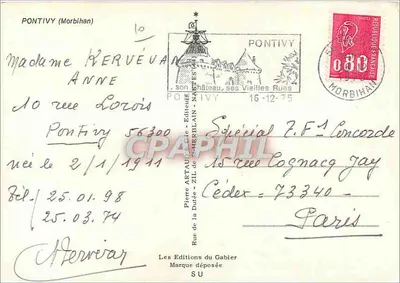 PONTIVY (Morbihan)
10
Madame KERVÉVAN
ANNE
10 rue Lorois
Pontivy 56300
née le 2/1/1911
Tél - 25.01.98
25.03.74
PONTIVY
son Château, ses Vieilles Rues
PONTIVY 16-12-75
MORBIHAN
0,80
Pierre ARTAUD
Rue de la Dutée - ZIL de ST-HERBLAIN - NANTES
CPAPHIL
Spécial T.F1 Concorde
15 rue Cognacq Jay
Cédex 73340
Paris
Les Editions du Gabier
Marque déposée
SU